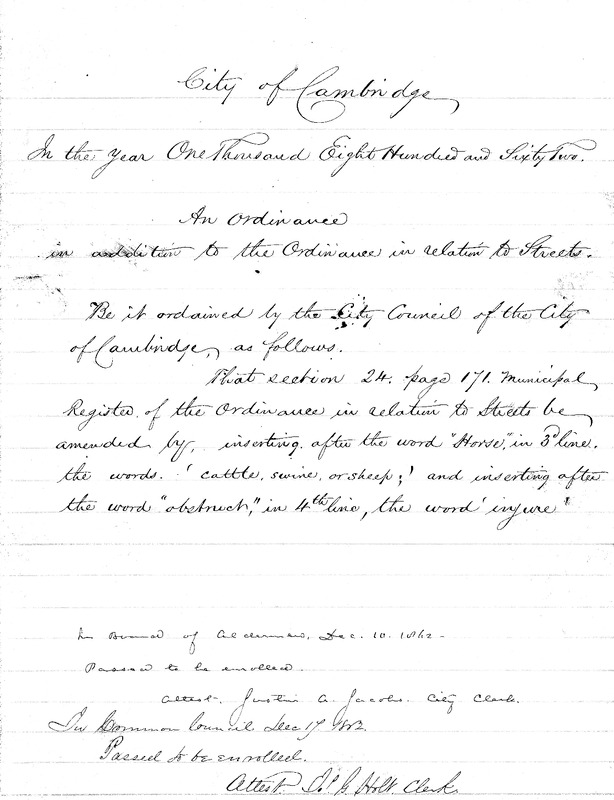 City of Cambridge,
In the year One Thousand Eight Hundred and Sixty Two.
An Ordinance
in addition to the Ordinance in relation to Streets.
Be it ordained by the City Council of the City
of Cambridge, as follows.
That section 24. page 171. Municipal
Register, of the Ordinance in relation to Streets be
amended by, inserting after the word "Horse," in 3d line.
the words. ' cattle, swine, or sheep;' and inserting after
the word "obstruct," in 4th line, the word 'injure'
In Board of Aldermen, Dec. 10. 1862-
Passed to be enrolled.
Attest. Justin A. Jacobs. City Clerk.
In Common Council Dec 17 1862.
Passed to be enrolled.
Attest. Holt. Clerk.